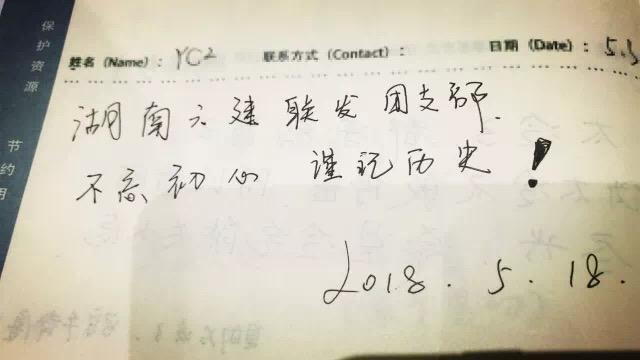 保护资源
节约用
姓名（Name）：YC2 联系方式（Contact）： 日期（Date）：5.3
湖南六建联发团支部.
不忘初心 谨记历史！
2018.5.18.